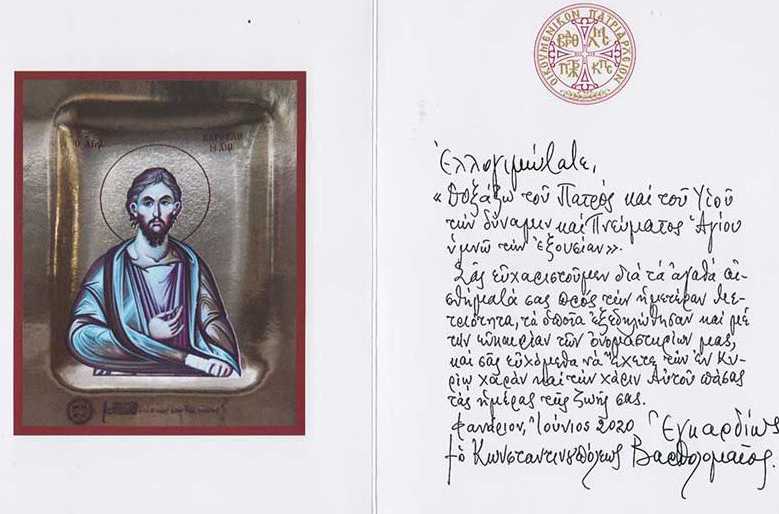 Ο ΑΓΙΟΣ
ΒΑΡΘΟΛΟ
ΜΑΙΟΣ
ΟΙΚΟΥΜΕΝΙΚΟΝ ΠΑΤΡΙΑΡΧΕΙΟΝ
Ἐλλογιμώτατε,
« Δοξάζω τοῦ Πατρός καί τοῦ Υἱοῦ
τήν δύναμιν καί Πνεύματος Ἁγίου
ὑμνῶ τήν ἐξουσίαν».
Σᾶς εὐχαριστοῦμεν διά τά ἀγαθά αἰ-
σθήματά σας πρός τήν ἡμετέραν Με-
τριότητα, τά ὁποῖα ἐξεδηλώθησαν καί μέ
τήν εὐκαιρίαν τῶν ὀνομαστηρίων μας,
καί σᾶς εὐχόμεθα νά ἔχετε τήν ἐν Κυ-
ρίῳ χαράν καί τήν χάριν Αὐτοῦ πάσας
τάς ἡμέρας τῆς ζωῆς σας.
Φανάριον, Ἰούνιος 2020 Ἐγκαρδίως
† ὁ Κωνσταντινουπόλεως Βαρθολομαῖος.